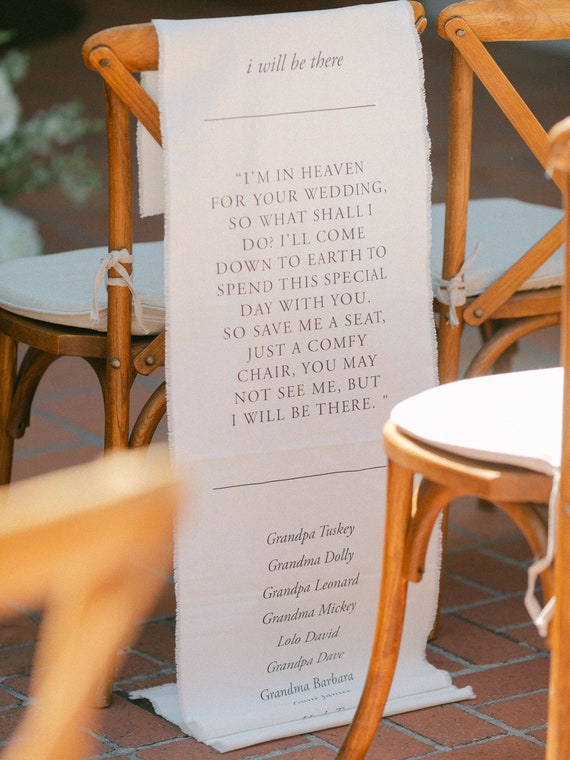 i will be there
“I'M IN HEAVEN
FOR YOUR WEDDING,
SO WHAT SHALL I
DO? I'LL COME
DOWN TO EARTH TO
SPEND THIS SPECIAL
DAY WITH YOU.
SO SAVE ME A SEAT,
JUST A COMFY
CHAIR, YOU MAY
NOT SEE ME, BUT
I WILL BE THERE. ”
Grandpa Tuskey
Grandma Dolly
Grandpa Leonard
Grandma Mickey
Lolo David
Grandpa Dave
Grandma Barbara